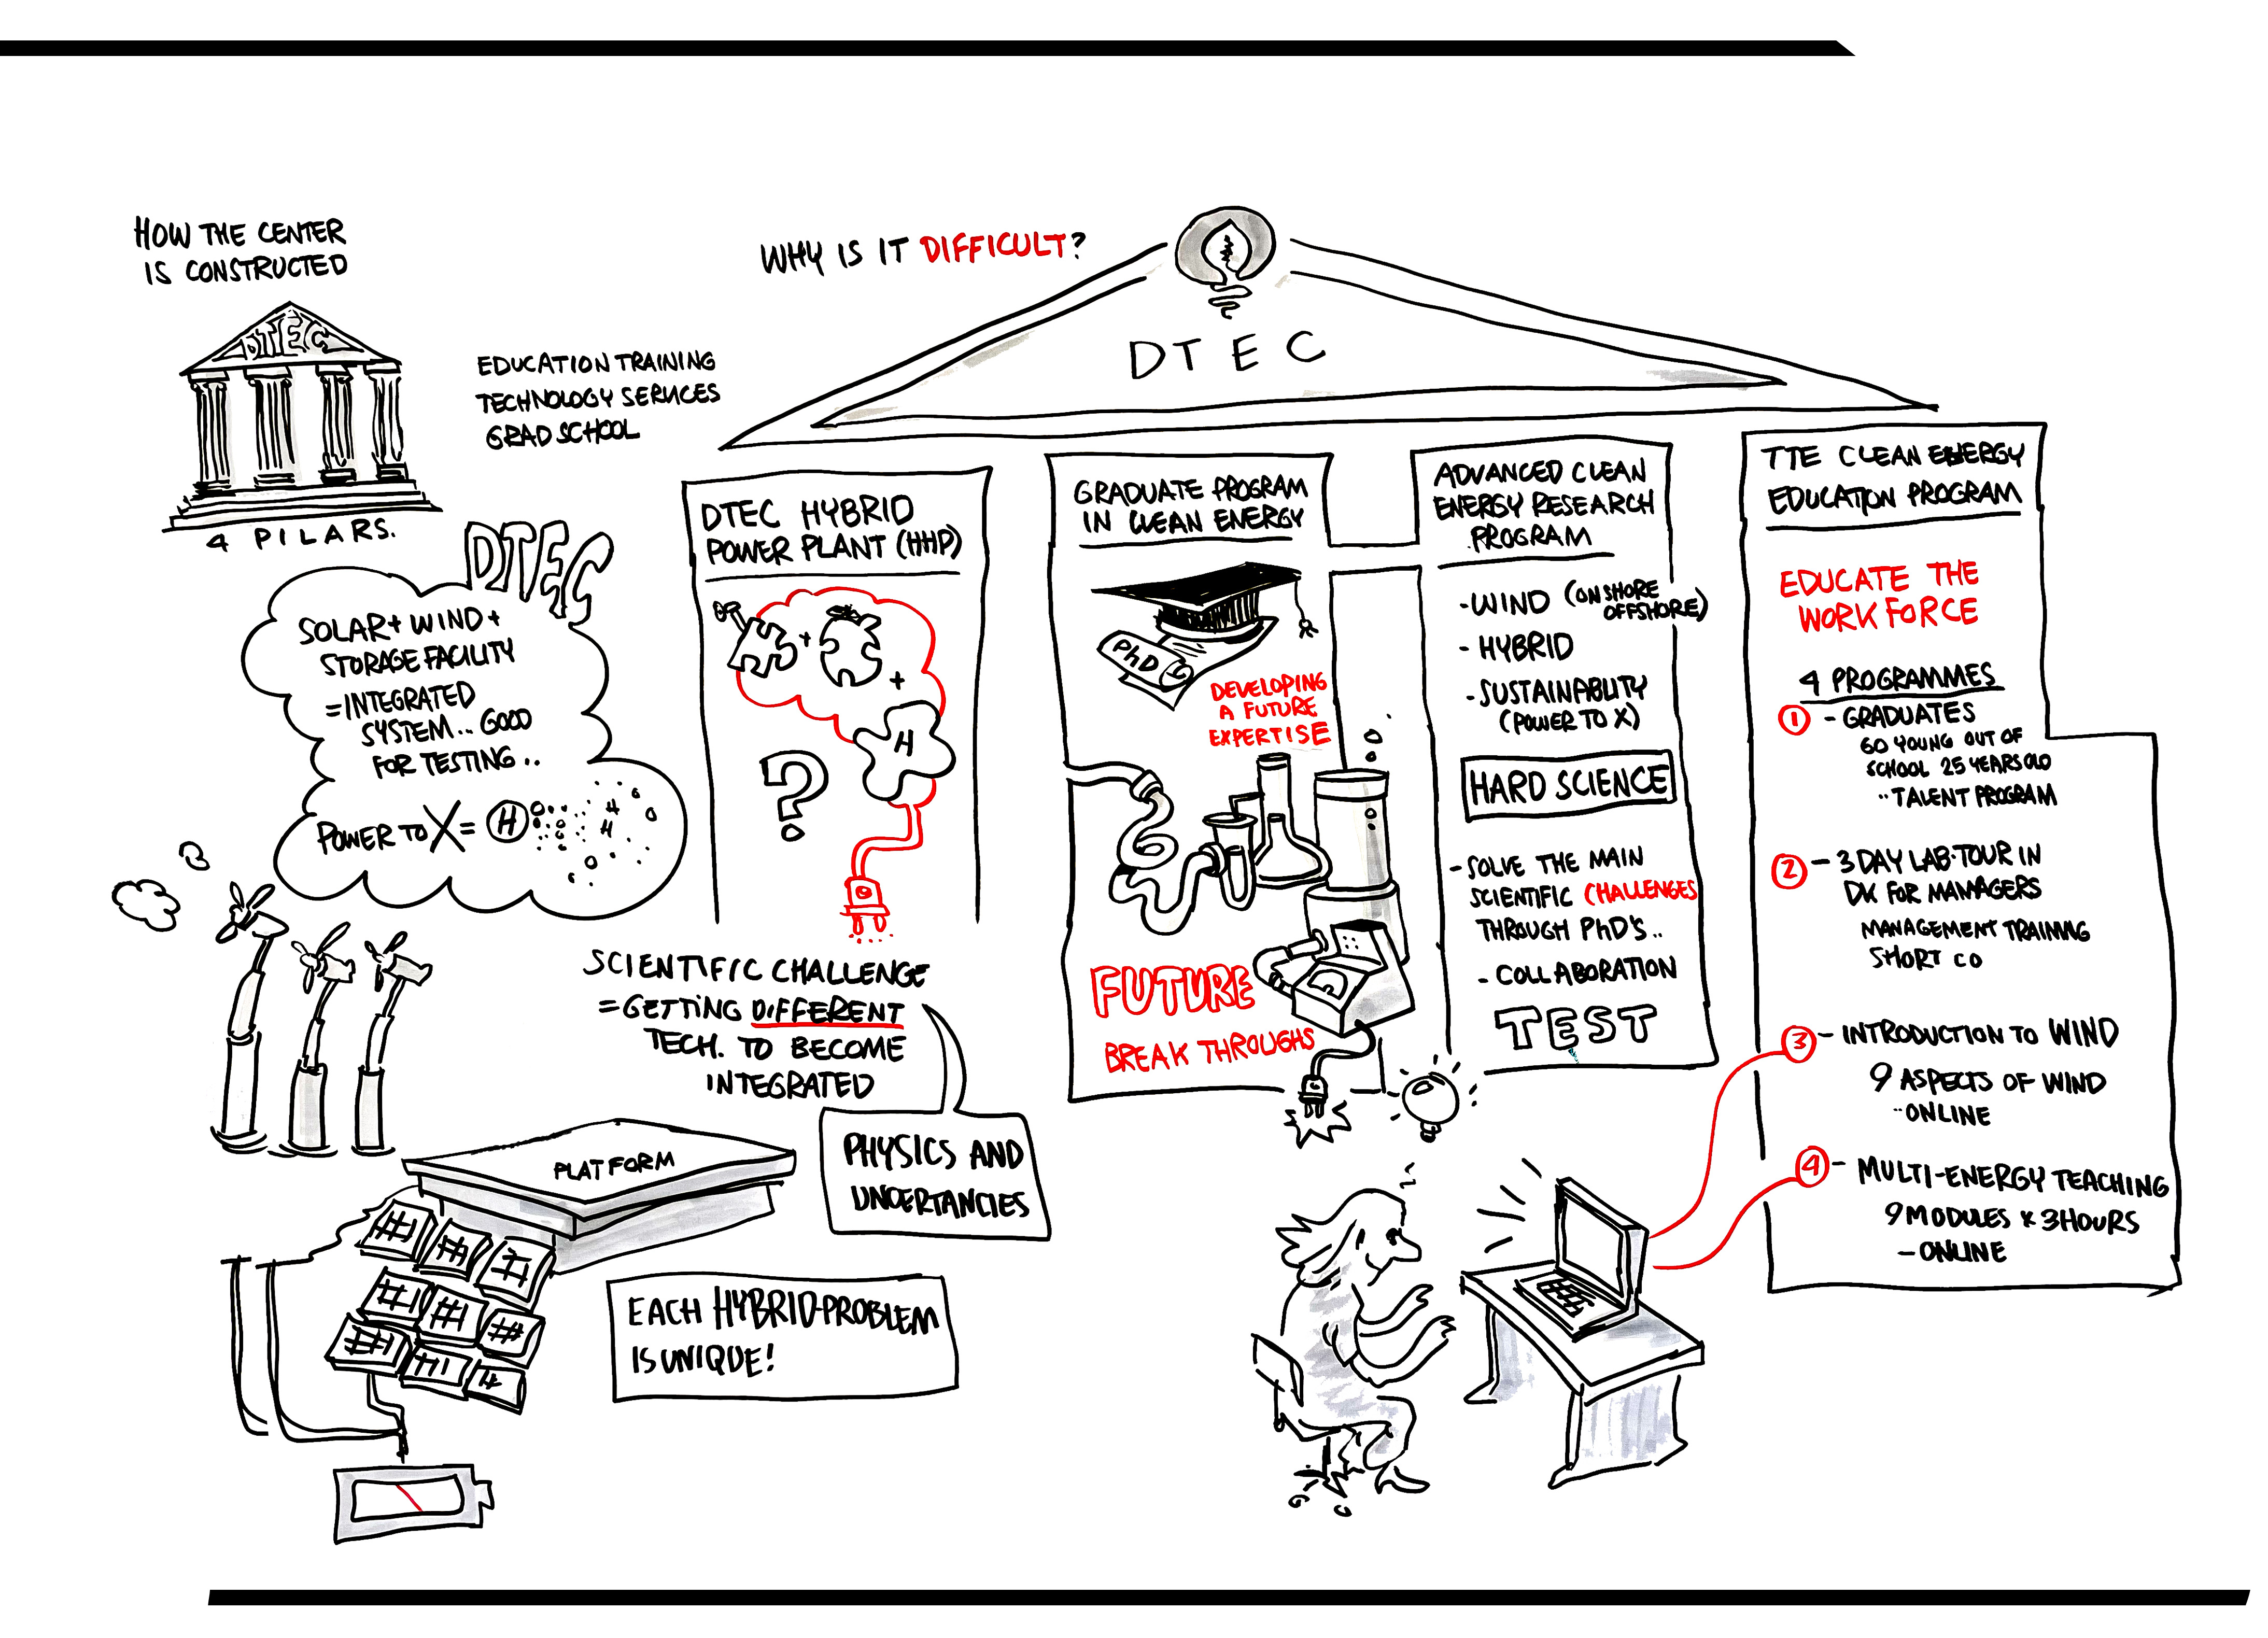 HOW THE CENTER
IS CONSTRUCTED
DTEC
4 PILARS.
EDUCATION TRAINING
TECHNOLOGY SERVICES
GRAD SCHOOL
WHY IS IT DIFFICULT?
DTEC
DTEC
SOLAR + WIND +
STORAGE FACILITY
= INTEGRATED
SYSTEM.. GOOD
FOR TESTING..
POWER TO X = H
H
H
DTEC HYBRID
POWER PLANT (HHP)
+
+
H
?
SCIENTIFIC CHALLENGE
= GETTING DIFFERENT
TECH. TO BECOME
INTEGRATED
PHYSICS AND
UNCERTANCIES
PLATFORM
EACH HYBRID-PROBLEM
IS UNIQUE!
GRADUATE PROGRAM
IN CLEAN ENERGY
PhD
DEVELOPING
A FUTURE
EXPERTISE
FUTURE
BREAK THROUGHS
ADVANCED CLEAN
ENERGY RESEARCH
PROGRAM
- WIND (ONSHORE
OFFSHORE)
- HYBRID
- SUSTAINABLITY
(POWER TO X)
HARD SCIENCE
- SOLVE THE MAIN
SCIENTIFIC CHALLENGES
THROUGH PhD'S..
- COLLABORATION
TEST
TTE CLEAN ENERGY
EDUCATION PROGRAM
EDUCATE THE
WORK FORCE
4 PROGRAMMES
1 - GRADUATES
60 YOUNG OUT OF
SCHOOL 25 YEARS OLD
.. TALENT PROGRAM
2 - 3 DAY LAB-TOUR IN
DK FOR MANAGERS
MANAGEMENT TRAINING
SHORT CO
3 - INTRODUCTION TO WIND
9 ASPECTS OF WIND
.. ONLINE
4 - MULTI-ENERGY TEACHING
9 MODULES x 3 HOURS
- ONLINE